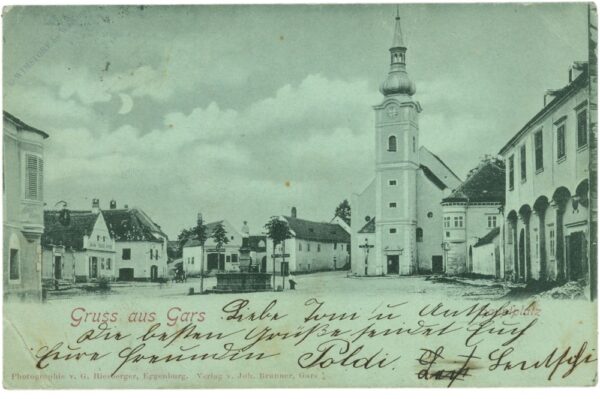 Gruss aus Gars
Liebe Tom u.
platz
die besten Grüße sendet Euch
Eure Freundin Poldi.
Photographie v. G. Hiesberger, Eggenburg. Verlag v. Joh. Brunner, Gars